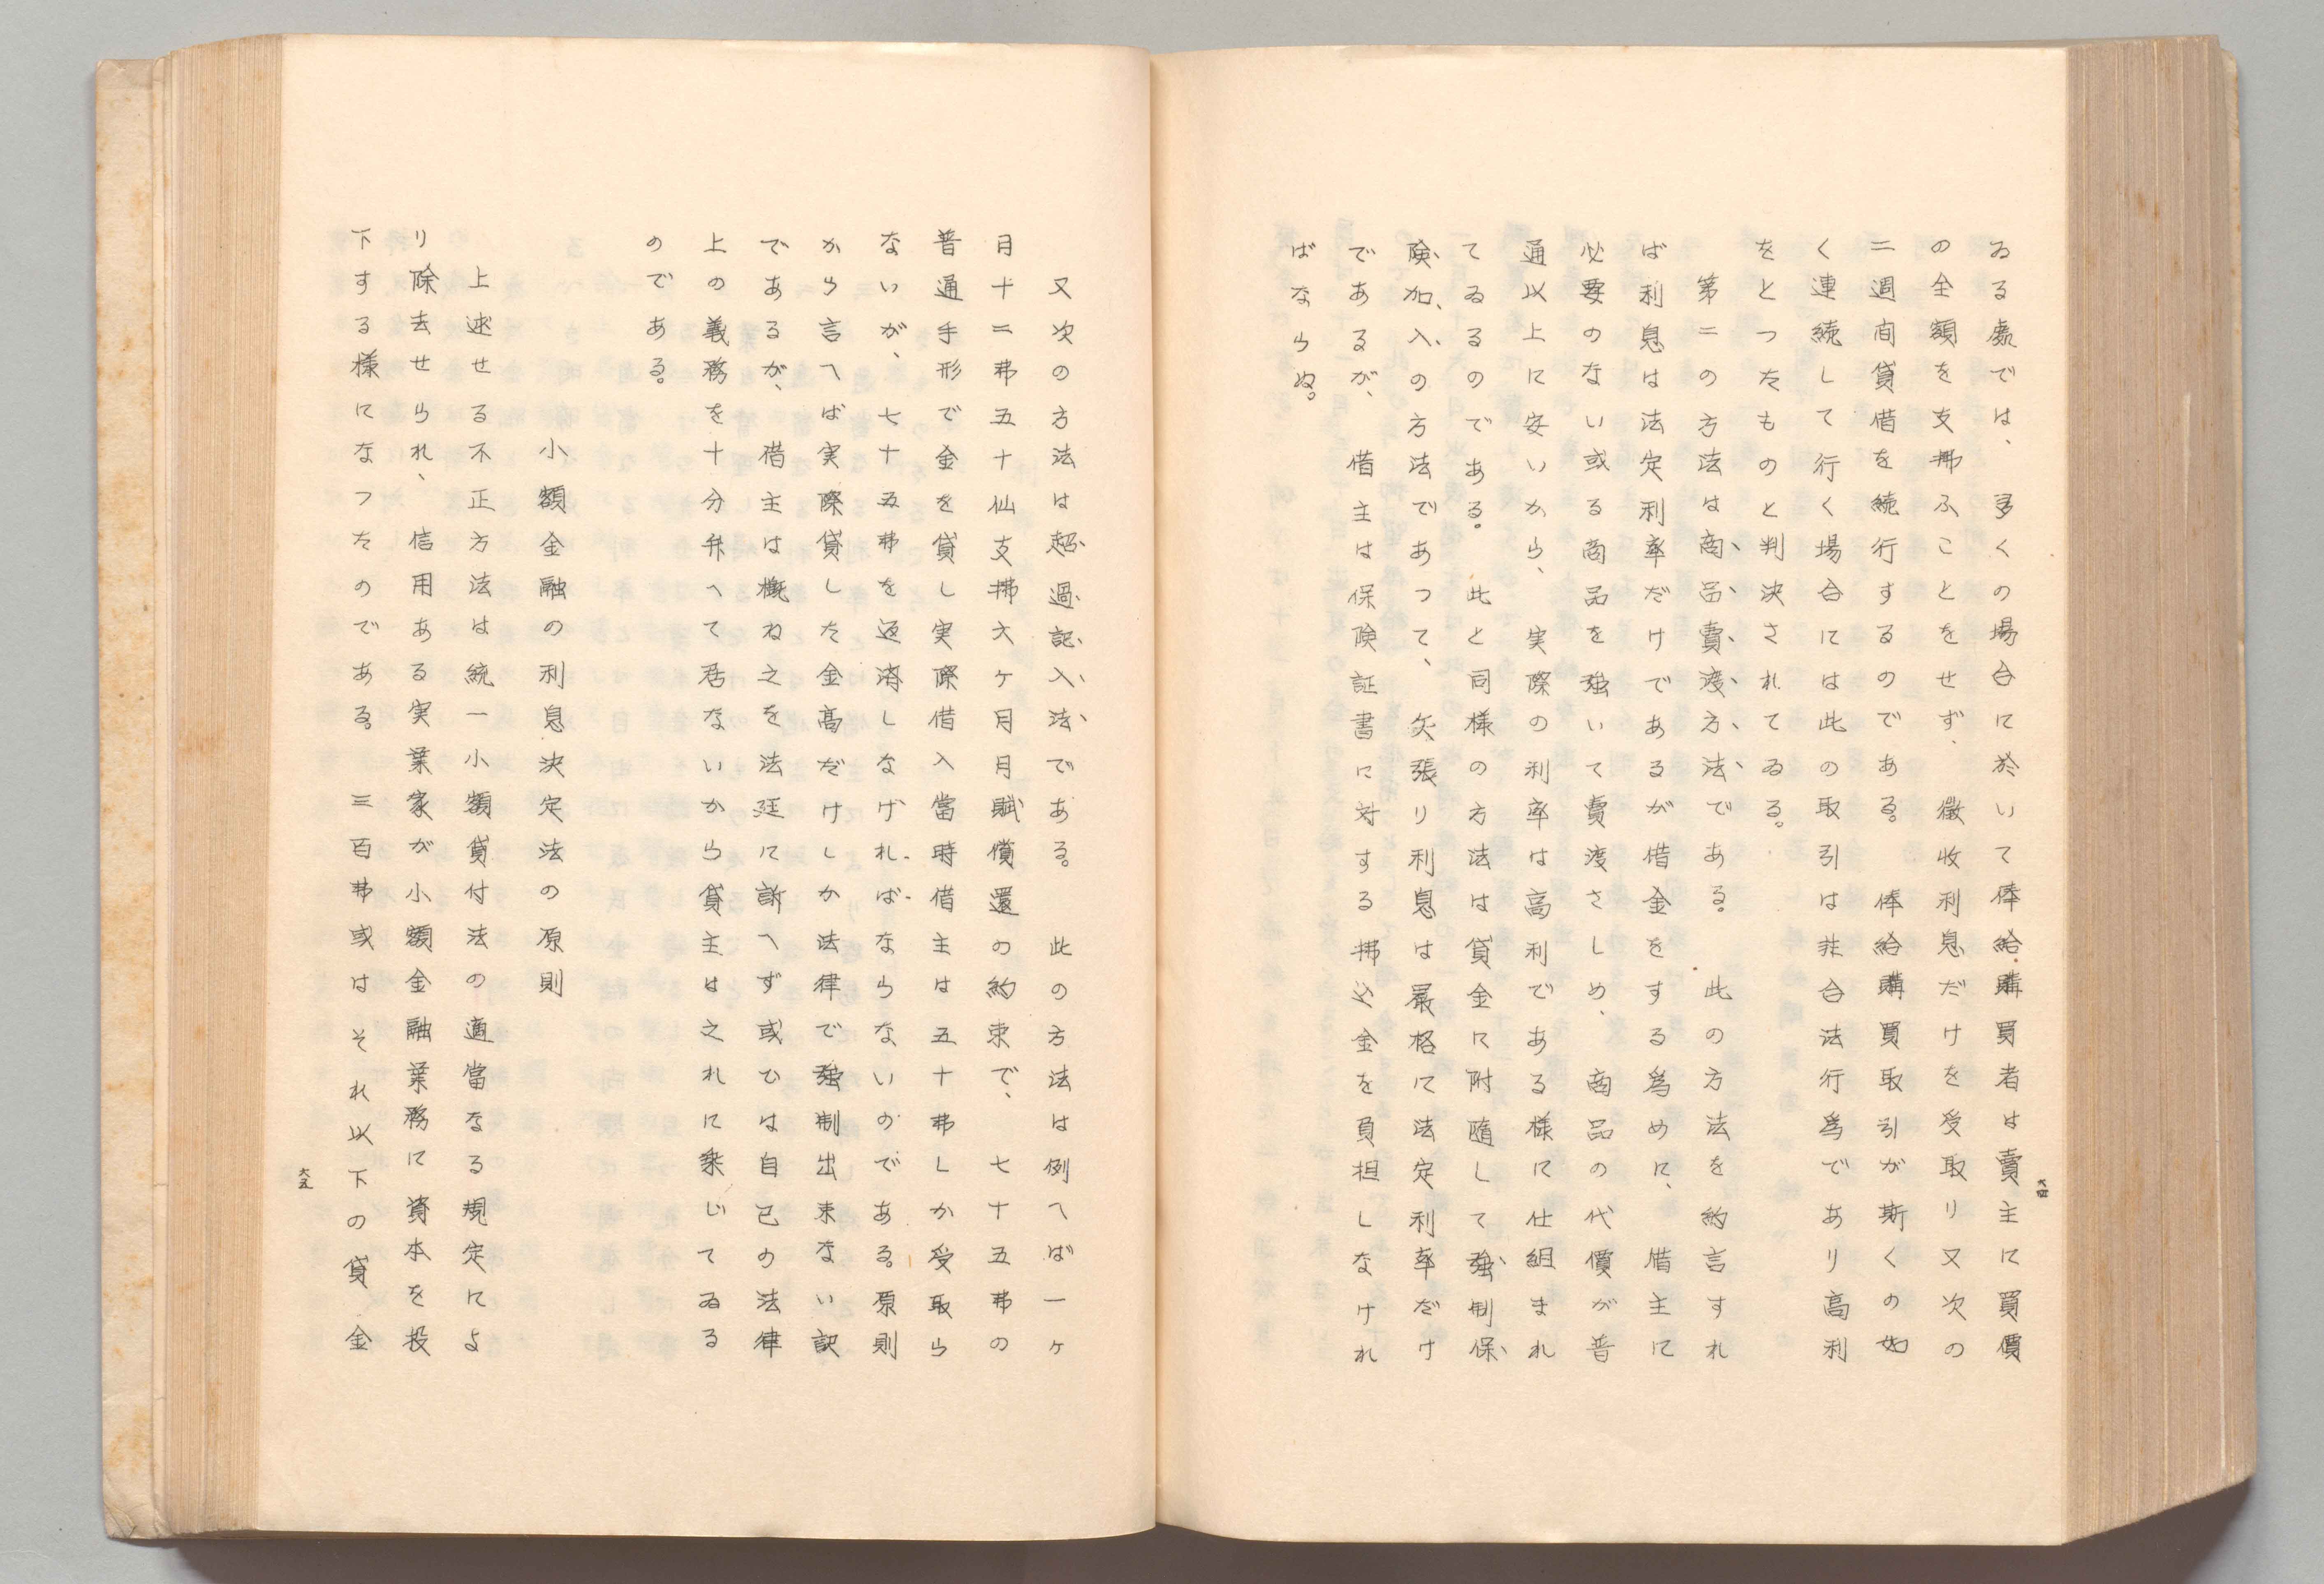 ゐる處では、多くの場合に於いて俸給購買者は賣主に買價
の全額を支拂ふことをせず、徴收利息だけを受取り又次の
二週間貸借を続行するのである。俸給購買取引が斯くの如
く連続して行く場合には此の取引は非合法行爲であり高利
をとつたものと判決されてゐる。
第二の方法は商品賣渡方法である。此の方法を約言すれ
ば利息は法定利率だけであるが借金をする爲めに、借主に
必要のない或る商品を強いて賣渡さしめ、商品の代價が普
通以上に安いから、実際の利率は高利である様に仕組まれ
てゐるのである。此と同様の方法は貸金に附随して強制保
険加入の方法であつて、矢張り利息は嚴格に法定利率だけ
であるが、借主は保険証書に対する拂込金を負担しなけれ
ばならぬ。
六四
又次の方法は超過記入法である。此の方法は例へば一ヶ
月十二弗五十仙支拂六ヶ月月賦償還の約束で、七十五弗の
普通手形で金を貸し実際借入當時借主は五十弗しか受取ら
ないが、七十五弗を返済しなければならないのである。原則
から言へば実際貸した金高だけしか法律で強制出来ない訳
であるが、借主は概ね之を法廷に訴へず或ひは自己の法律
上の義務を十分弁へて居ないから貸主は之れに乗じてゐる
のである。
小額金融の利息決定法の原則
上述せる不正方法は統一小額貸付法の適當なる規定によ
り除去せられ、信用ある実業家が小額金融業務に資本を投
下する様になつたのである。三百弗或はそれ以下の貸金
六五